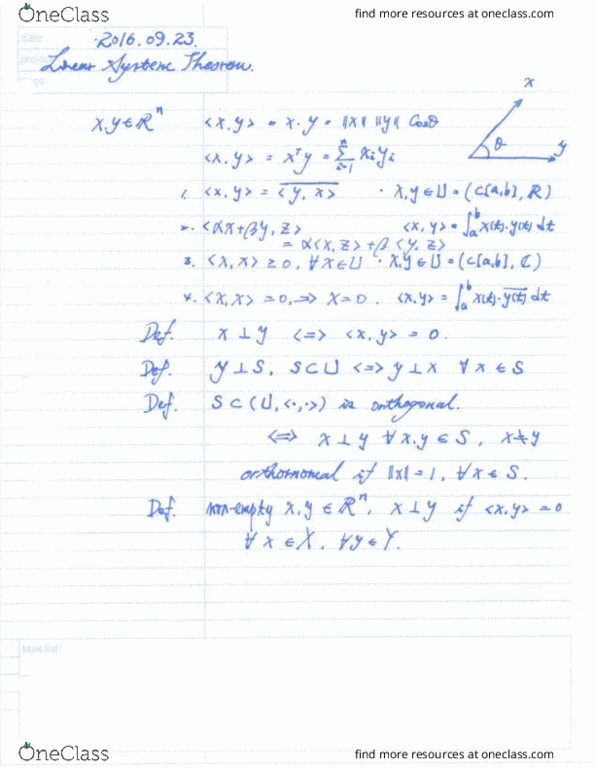 OneClass
find more resources at oneclass.com
date
2016.09.23.
Linear System Theorem.
x
x,y ∈ ℝⁿ <x,y> = x·y = ‖x‖ ‖y‖ Cosθ
θ y
<x,y> = xᵀy = Σᵢ₌₁ⁿ xᵢyᵢ
1. <x,y> = \overline{<y,x>} · x,y ∈ U = (C[a,b], ℝ)
2. <αx+βy, z> <x,y> = ∫ₐᵇ x(t)·y(t) dt
= α<x,z> + β<y,z>
3. <x,x> ≥ 0, ∀x∈U · x,y ∈ U = (C[a,b], ℂ)
4. <x,x> = 0, => x = 0. <x,y> = ∫ₐᵇ x(t)·\overline{y(t)} dt
Def. x ⊥ y <=> <x,y> = 0.
Def. y ⊥ S, S ⊂ U <=> y ⊥ x ∀ x ∈ S
Def. S ⊂ (U, <·,·>) is orthogonal.
<=> x ⊥ y ∀ x,y ∈ S, x ≠ y
orthornomal if ‖x‖ = 1, ∀x ∈ S.
Def. non-empty X,Y ∈ ℝⁿ, X ⊥ Y if <x,y> = 0
∀ x ∈ X, ∀y ∈ Y.
task list:
OneClass
find more resources at oneclass.com